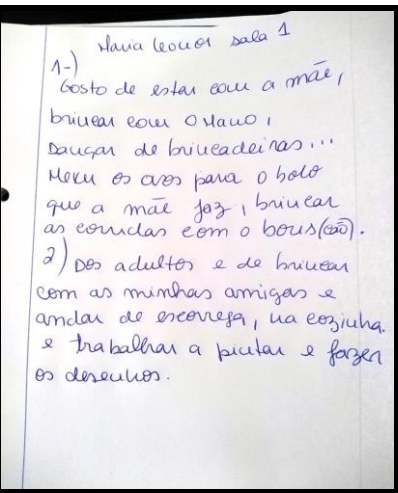 Maria Leonor sala 1
1-)
Gosto de estar com a mãe,
brincar com o Mano,
Dançar de brincadeiras...
Mexer os ovos para o bolo
que a mãe faz, brincar
as corridas com o boris (cão).
2) Dos adultos e de brincar
com as minhas amigas e
andar de escorrega, na cozinha.
e trabalhar a pintar e fazer
os desenhos.